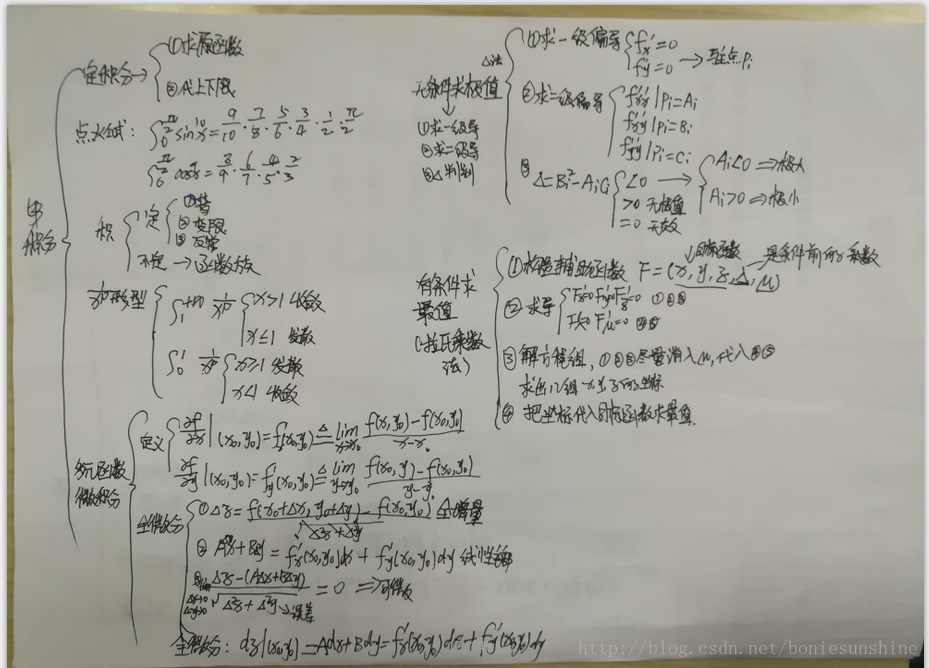 定积分→
①求原函数
②代上下限
点火公式: ∫₀^(π/2) sin¹⁰x = 9/10 · 7/8 · 5/6 · 3/4 · 1/2 · π/2
∫₀^(π/2) cos⁹x = 8/9 · 6/7 · 4/5 · 2/3
积分
积
定
②变限
③反常
不定 → 函数族
∫₁^(+∞) 1/xᵖ
>1 收敛
≤1 发散
∫₀¹ 1/xᵖ
≥1 发散
<1 收敛
多元函数
微积分
定义
∂f/∂x |(x₀,y₀) = f'x(x₀,y₀) ≜ lim x→x₀ (f(x,y₀)-f(x₀,y₀))/(x-x₀)
∂f/∂y |(x₀,y₀) = f'y(x₀,y₀) ≜ lim y→y₀ (f(x₀,y)-f(x₀,y₀))/(y-y₀)
全微分
①Δz = f(x₀+Δx, y₀+Δy) - f(x₀,y₀) 全增量
② AΔx+BΔy = f'x(x₀,y₀)dx + f'y(x₀,y₀)dy
③ lim Δx→0 Δy→0 (Δz-(AΔx+BΔy))/√(Δ²x+Δ²y) = 0 ⇒可微
→误差
全微分: dz|(x₀,y₀) = Adx+Bdy = f'x(x₀,y₀)dx + f'y(x₀,y₀)dy
无条件求极值
①求一级导
②求二级导
③Δ判别
Δ法
①求一级偏导
f'x=0
f'y=0
→驻点Pi
②求二级偏导
f''xx|Pi=Ai
f''xy|Pi=Bi
f''yy|Pi=Ci
③ Δ=Bi²-AiCi
<0 →
Ai<0 ⇒极大
Ai>0 ⇒极小
>0 无极值
=0 无效
有条件求
最值
(拉氏乘数
法)
①构造辅助函数 F=(x,y,z,λ,μ)
目标函数
是条件前的系数
②求导
F'x=0 F'y=0 F'z=0 ①②③
F'λ=0 F'μ=0 ④⑤
③解方程组,①②③尽量消λ,μ,代入④⑤
求出几组x,y,z的坐标
④把坐标代入目标函数求最值
http://blog.csdn.net/boniesunshine